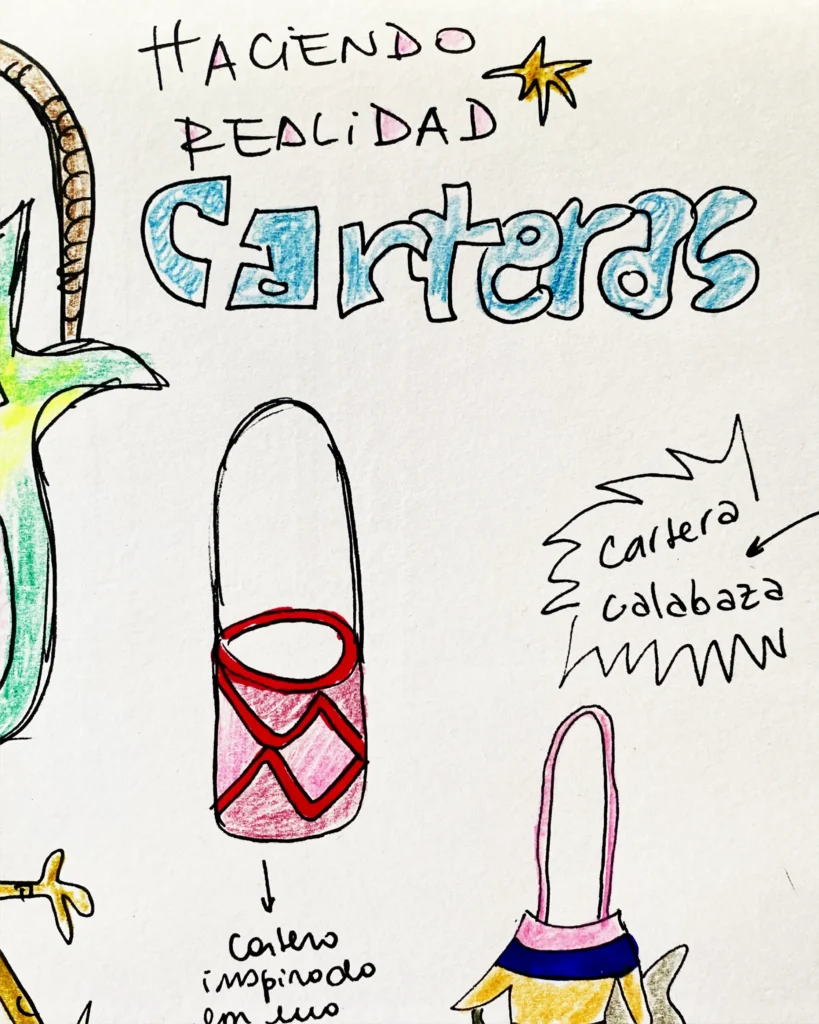 HACiENDO
REALiDAD
Carteras
cartera
calabaza
Cartera
inspirada
en una